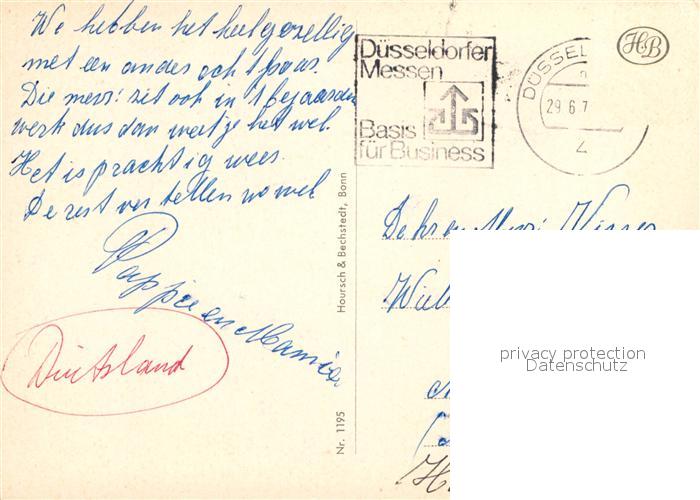 We hebben het heel gezellig
met een ander echtpaar.
Die mevr: zit ook in 't bejaarden
werk dus dan weet je het wel.
Het is prachtig weer.
De rest vertellen we wel
Pappie en Mamie.
Duitsland
Nr. 1195
Hoursch & Bechstedt, Bonn
Düsseldorfer
Messen
Basis
für Business
DÜSSEL
29 6 7
4
HB
De hr en Mevr:
privacy protection
Datenschutz